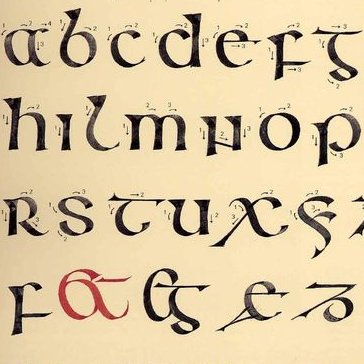 a b c d e f g
h i l m n o p
r s t u x y